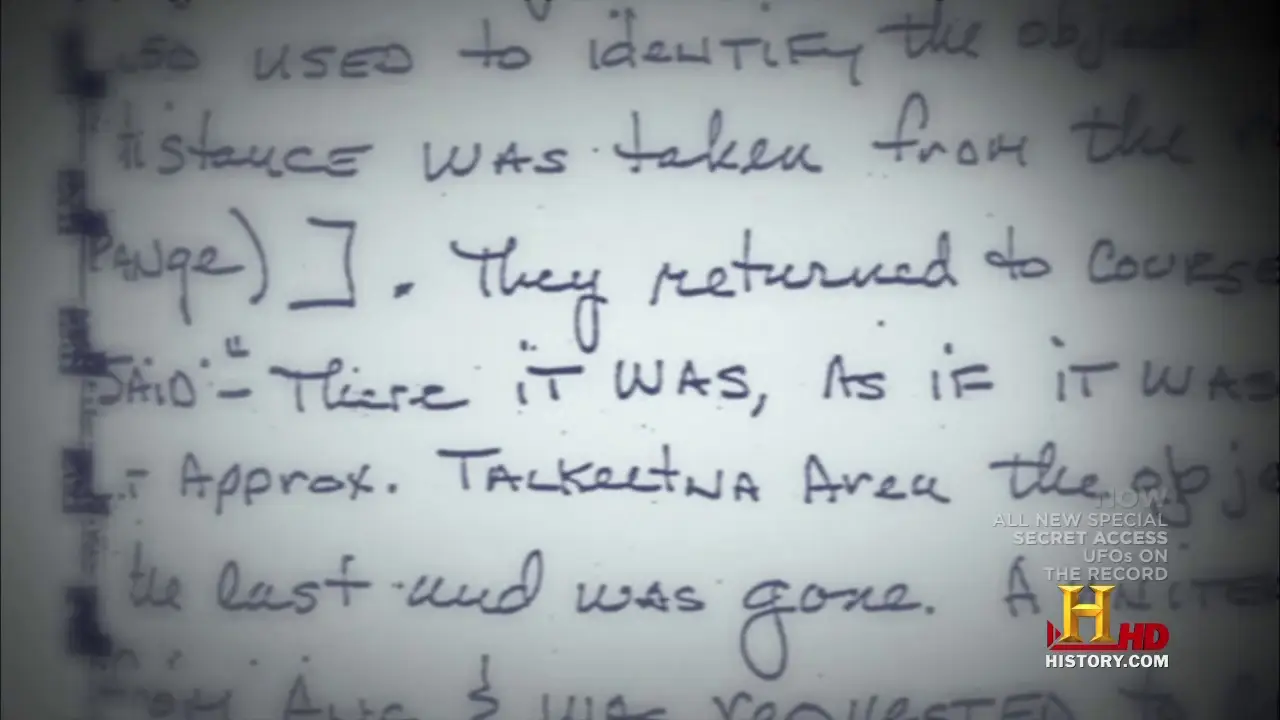 USED to identify the object
distance was taken from the
Range)]. They returned to course
SAID "- There it was, As if it was
- Approx. TALKEETNA Area the obje
the last and was gone. A
& was requested to
NOW
ALL NEW SPECIAL
SECRET ACCESS
UFOs ON
THE RECORD
H HD
HISTORY.COM